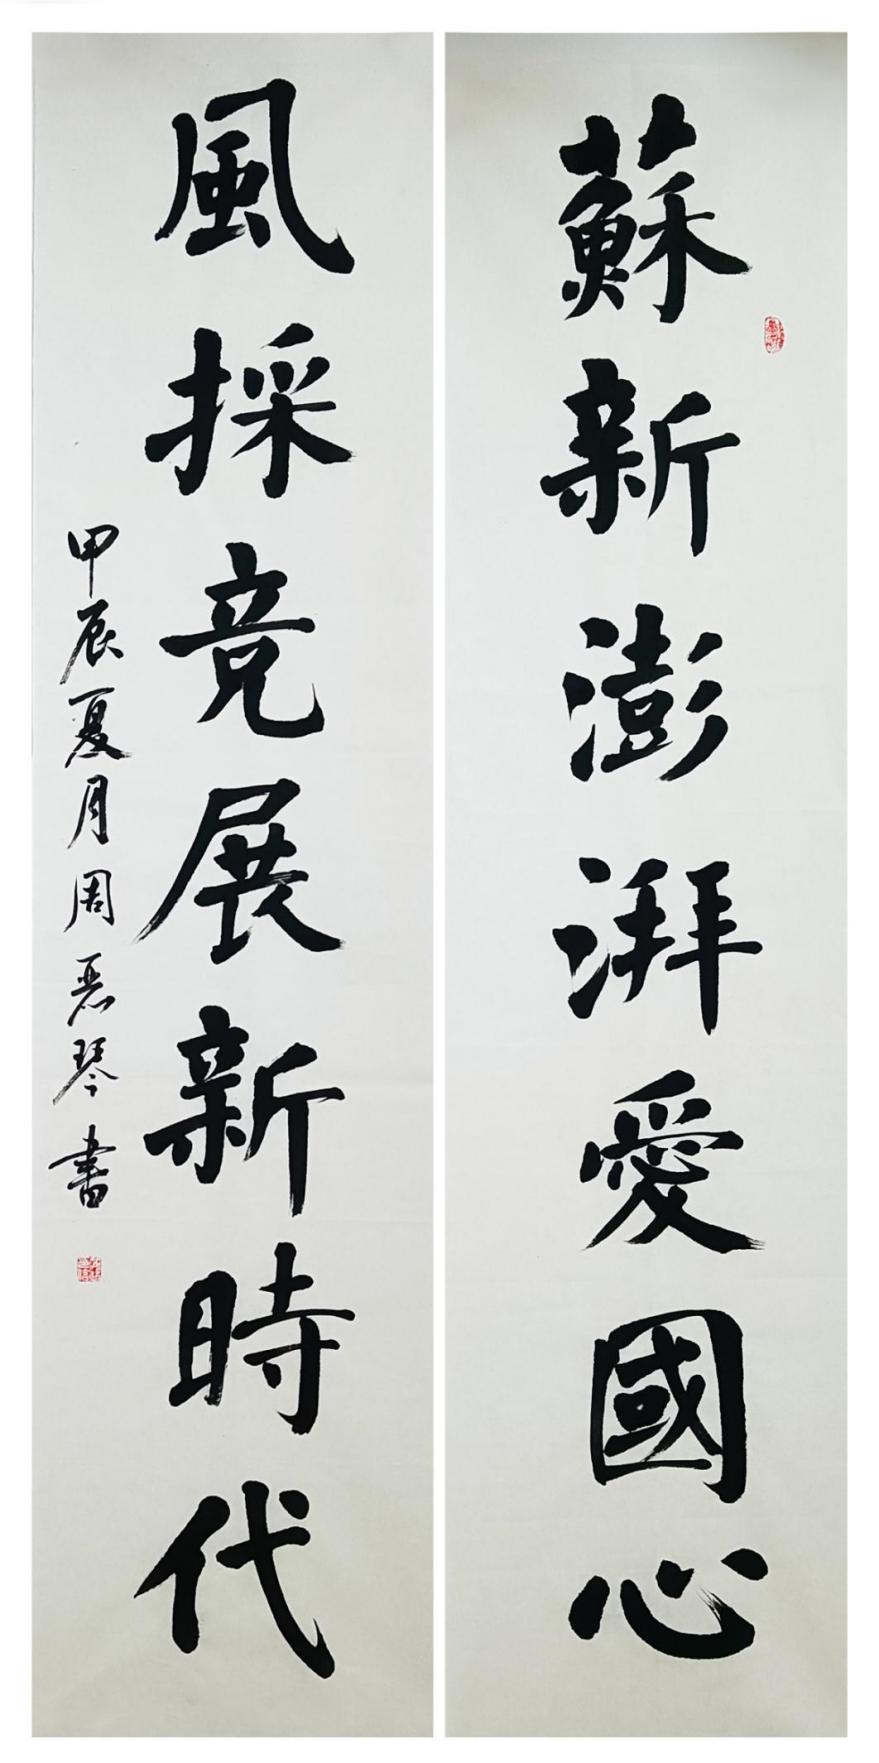 蘇新澎湃愛國心
風採竞展新時代
甲辰夏月周瑟琴書